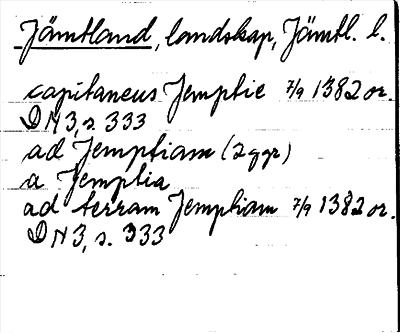 Jämtland, landskap, Jämtl. l.
capitaneus Jemptie 7/9 1382 or.
DN 3, s. 333
ad Jemptiam (2 ggr)
a Jemptia
ad terram Jemptiam 7/9 1382 or.
DN 3, s. 333